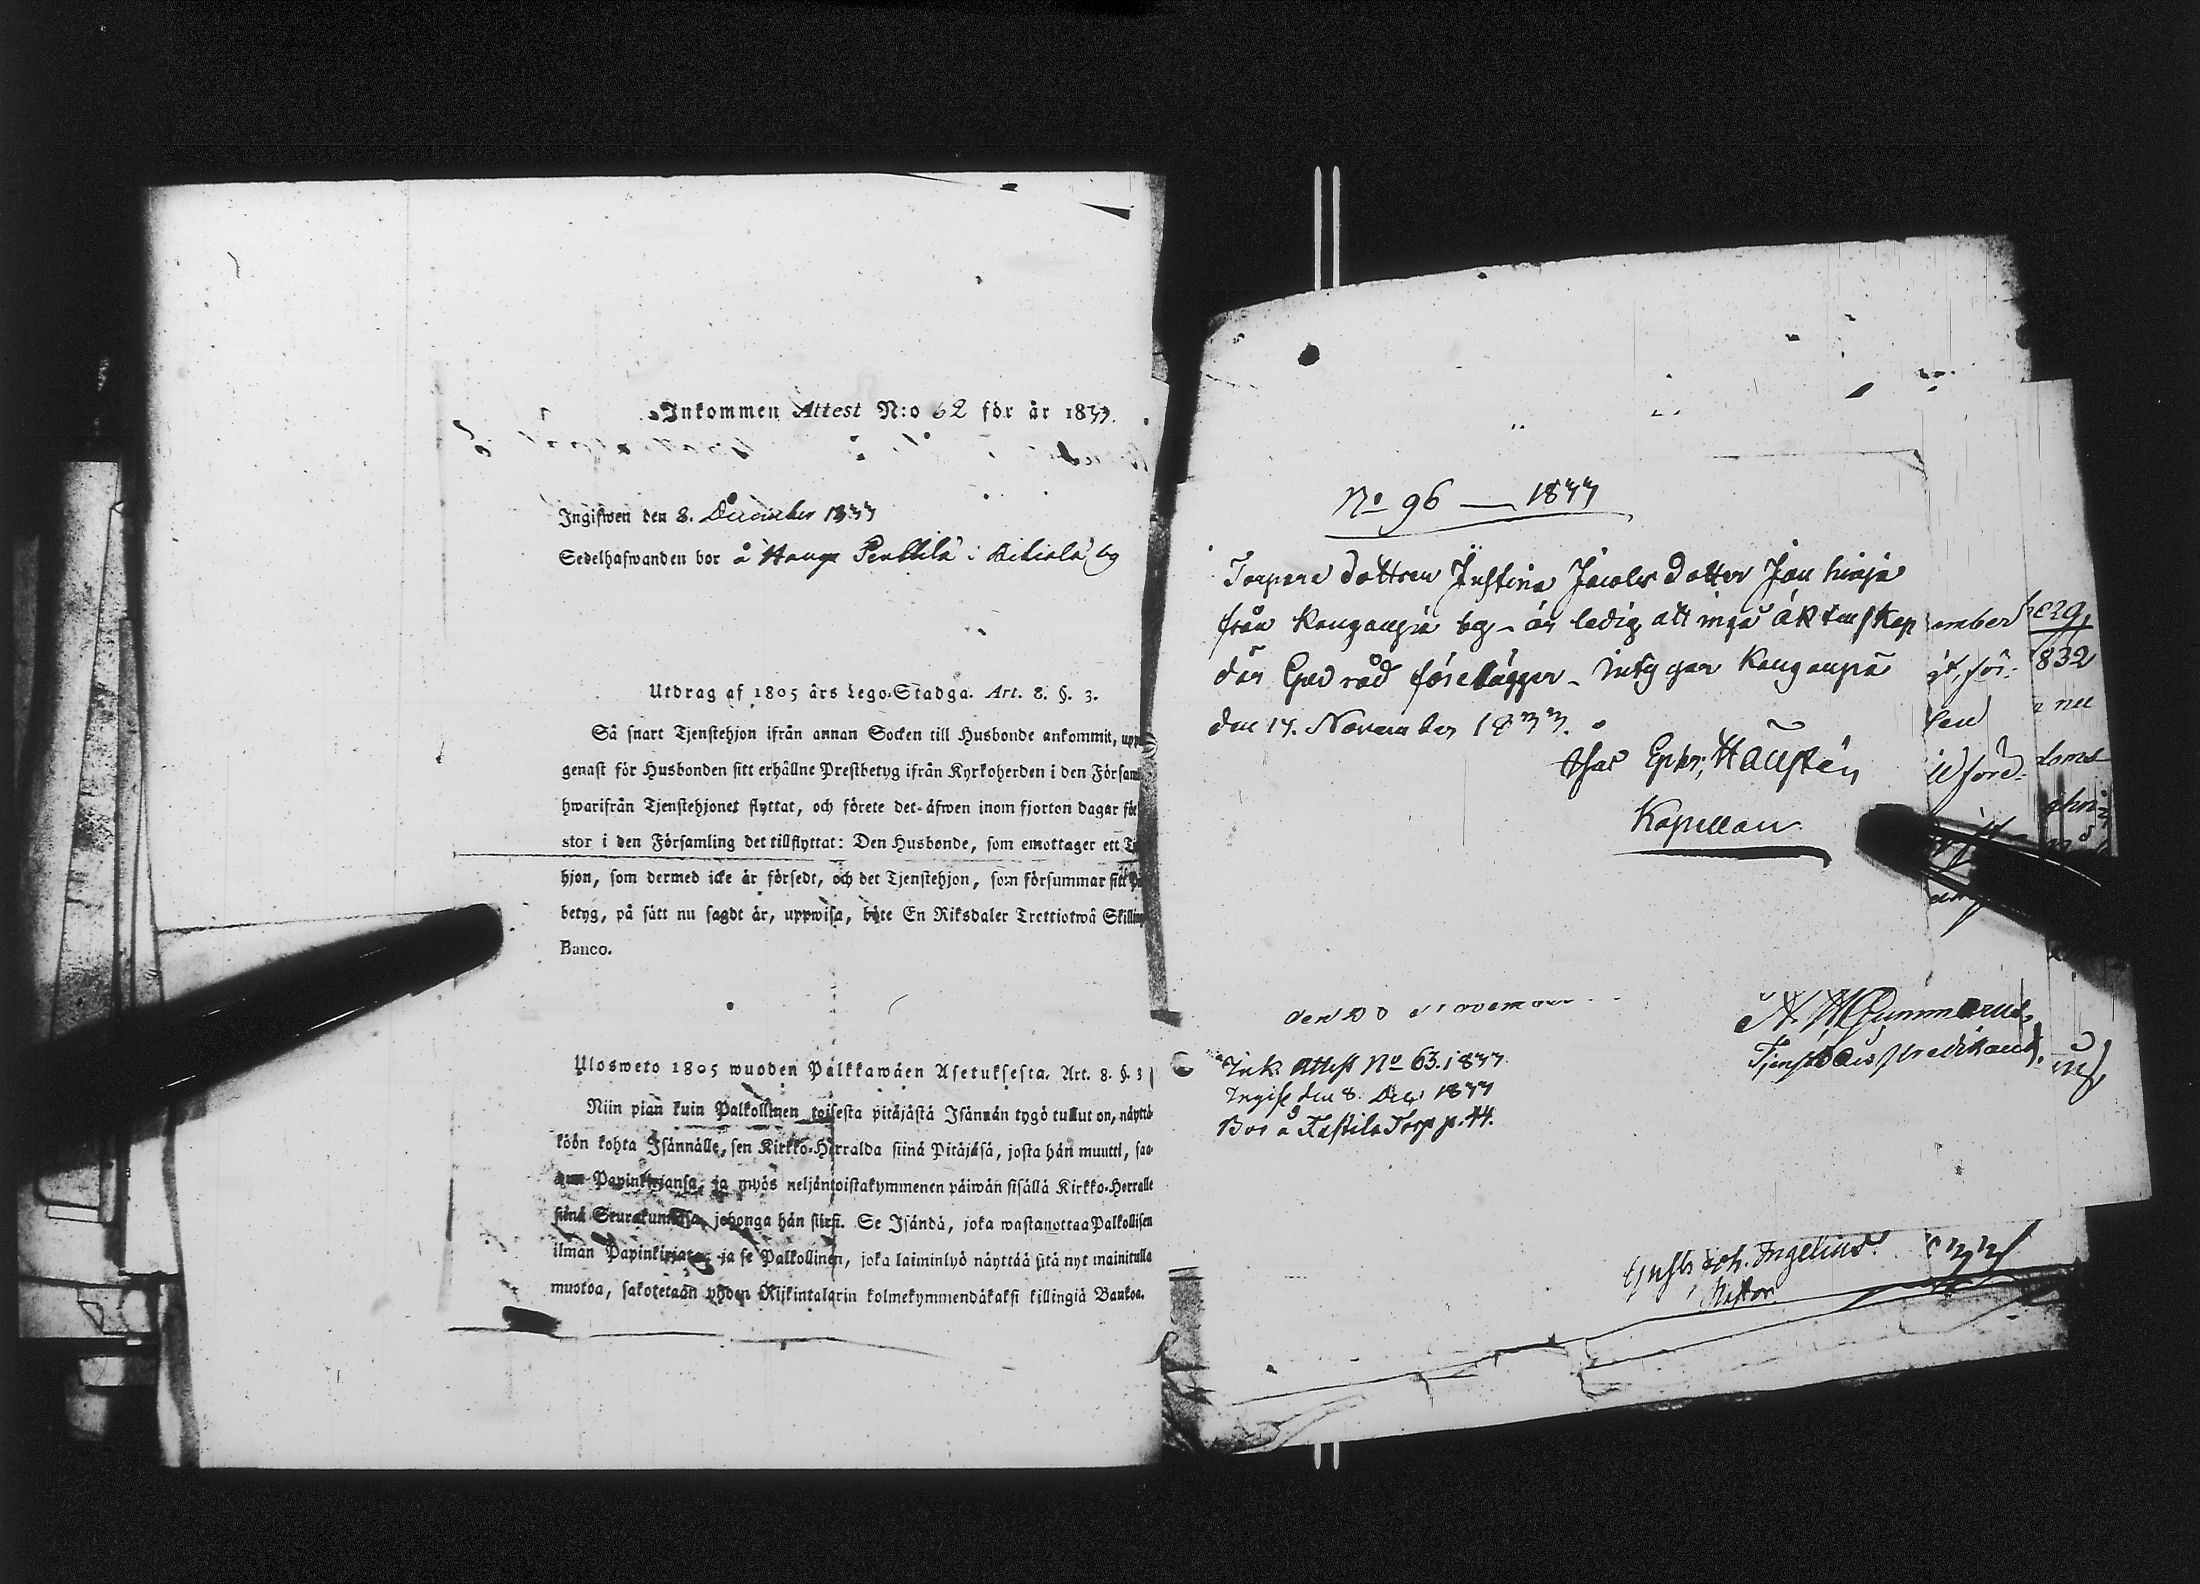 Inkommen Attest N:o 62 för år 1833.
Ingifwen den 8. December 1833
Sedelhafwanden bor å Hauga Penttilä i Kikiala by
Utdrag af 1805 års Lego-Stadga. Art. 8. §. 3.
Så snart Tjenstehjon ifrån annan Socken till Husbonde ankommit, upp
genast för Husbonden sitt erhållne Prestbetyg ifrån Kyrkoherden i den Församl
hwarifrån Tjenstehjonet flyttat, och förete det-äfwen inom fjorton dagar för
stor i den Församling det tillflyttat: Den Husbonde, som emottager ett Tj
hjon, som dermed icke är försedt, och det Tjenstehjon, som försummar sitt
betyg, på sätt nu sagdt är, uppwisa, böte En Riksdaler Trettiotwå Skilling
Banco.
Ulosweto 1805 wuoden Palkkawäen Asetuksesta. Art. 8. §. 3
Niin pian kuin Palkollinen toisesta pitäjästä Isännän tygö tullut on, näyttä-
köön kohta Isännälle, sen Kirkko-Herralda siinä Pitäjäsä, josta hän muutti, saa-
dun Papinkirjansa, ja myös neljäntoistakymmenen päiwän sisällä Kirkko-Herralle
siinä Seurakunnasa, johonga hän siirsi. Se Isändä, joka wastanottaa Palkollisen
ilman Papinkirjata, ja se Palkollinen, joka laiminlyö näyttää sitä nyt mainitulla
muotoa, sakotetaan yhden Rijkintalarin kolmekymmendäkaksi killingiä Bankoa.
No 96 — 1833
Torpare dottren Justina Jacobs dotter
från Kanganpä by - är ledig att ingå äktenskap
där Gud råd förelägger - intygar Kanganpä
den 14. November 1833.
Hausten
Kapellan
ember
832
den
Gummerus
Ink. Attest No 63. 1833
Ingif. den 8. Dec. 1833
Bor å Torp p. 44.
Gust. Joh. Ingelius.
Pastor.